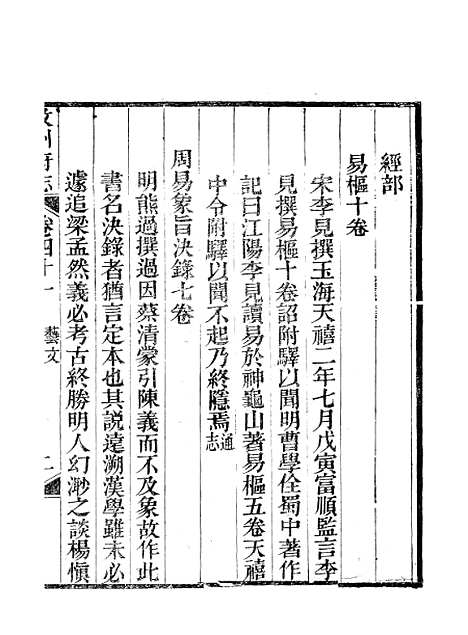 經部
易樞十卷
宋李見撰玉海天禧二年七月戊寅富順監言李
見撰易樞十卷詔附驛以聞明曹學佺蜀中著作
記曰江陽李見讀易於神龜山著易樞五卷天禧
中令附驛以聞不起乃終隱焉通志
周易象旨決錄七卷
明熊過撰過因蔡清蒙引陳義而不及象故作此
書名決錄者猶言定本也其說遠溯漢學雖未必
遽追梁孟然義必考古終勝明人幻渺之談楊愼
州府志 卷四十一 藝文 二